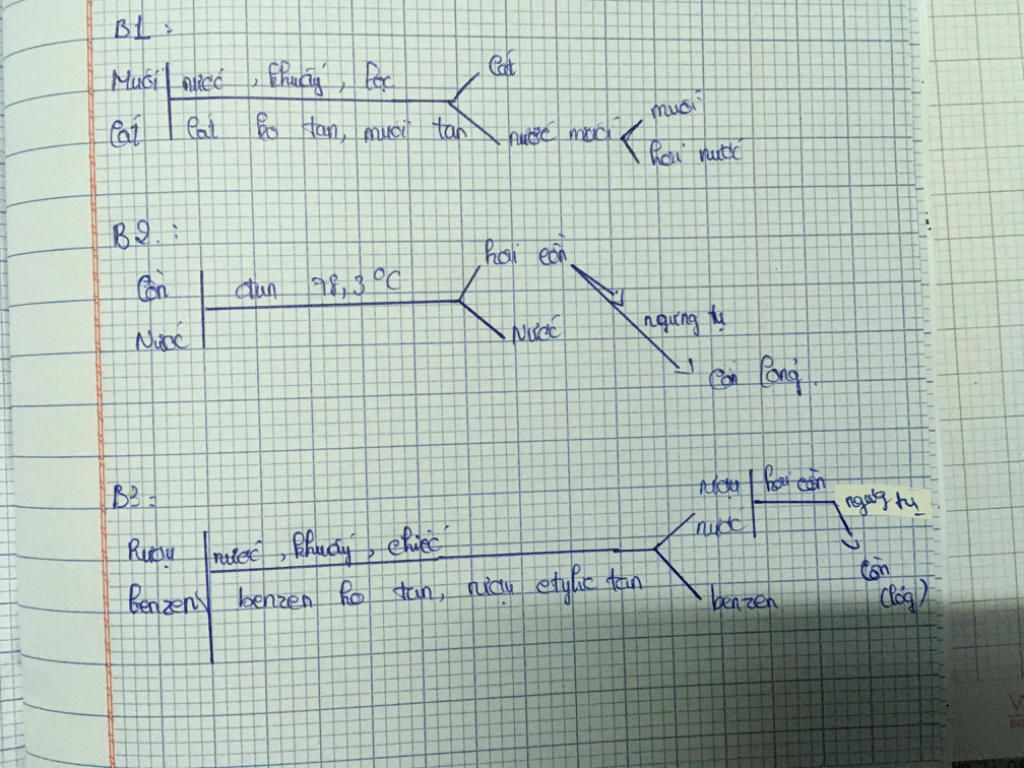 B1 :
Muối nước , khuấy , lọc Cát
Cát Cát ko tan, muối tan nước muối muối
hơi nước
B2 :
Cồn đun 78,3°C hơi cồn
Nước Nước ngưng tụ
Cồn lỏng.
B3 :
Rượu nước , khuấy , chiếc rượu hơi cồn ngưng tụ
benzen benzen ko tan, rượu etylic tan nước Cồn
benzen (lỏg)